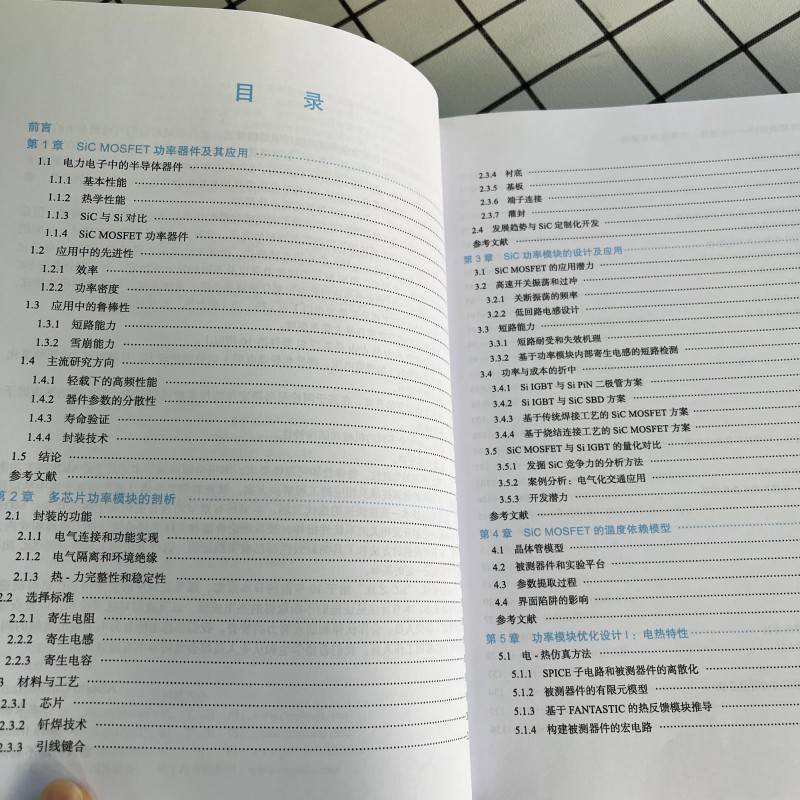 目 录
前言
第 1 章 SiC MOSFET 功率器件及其应用
1.1 电力电子中的半导体器件
1.1.1 基本性能
1.1.2 热学性能
1.1.3 SiC 与 Si 对比
1.1.4 SiC MOSFET 功率器件
1.2 应用中的先进性
1.2.1 效率
1.2.2 功率密度
1.3 应用中的鲁棒性
1.3.1 短路能力
1.3.2 雪崩能力
1.4 主流研究方向
1.4.1 轻载下的高频性能
1.4.2 器件参数的分散性
1.4.3 寿命验证
1.4.4 封装技术
1.5 结论
参考文献
第 2 章 多芯片功率模块的剖析
2.1 封装的功能
2.1.1 电气连接和功能实现
2.1.2 电气隔离和环境绝缘
2.1.3 热 - 力完整性和稳定性
2.2 选择标准
2.2.1 寄生电阻
2.2.2 寄生电感
2.2.3 寄生电容
3 材料与工艺
2.3.1 芯片
2.3.2 钎焊技术
2.3.3 引线键合
2.3.4 衬底
2.3.5 基板
2.3.6 端子连接
2.3.7 灌封
2.4 发展趋势与 SiC 定制化开发
参考文献
第 3 章 SiC 功率模块的设计及应用
3.1 SiC MOSFET 的应用潜力
3.2 高速开关振荡和过冲
3.2.1 关断振荡的频率
3.2.2 低回路电感设计
3.3 短路能力
3.3.1 短路耐受和失效机理
3.3.2 基于功率模块内部寄生电感的短路检测
3.4 功率与成本的折中
3.4.1 Si IGBT 与 Si PiN 二极管方案
3.4.2 Si IGBT 与 SiC SBD 方案
3.4.3 基于传统焊接工艺的 SiC MOSFET 方案
3.4.4 基于烧结连接工艺的 SiC MOSFET 方案
3.5 SiC MOSFET 与 Si IGBT 的量化对比
3.5.1 发掘 SiC 竞争力的分析方法
3.5.2 案例分析：电气化交通应用
3.5.3 开发潜力
参考文献
第 4 章 SiC MOSFET 的温度依赖模型
4.1 晶体管模型
4.2 被测器件和实验平台
4.3 参数提取过程
4.4 界面陷阱的影响
参考文献
第 5 章 功率模块优化设计 I：电热特性
5.1 电 - 热仿真方法
5.1.1 SPICE 子电路和被测器件的离散化
5.1.2 被测器件的有限元模型
5.1.3 基于 FANTASTIC 的热反馈模块推导
5.1.4 构建被测器件的宏电路